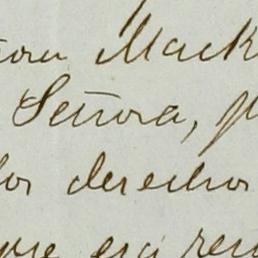 Mack
Señora, p
los derechos
que esa ren